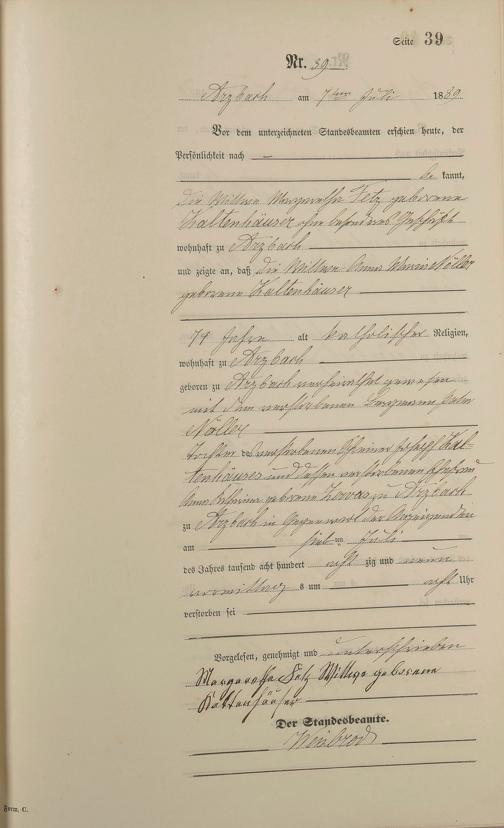 Seite 39
Nr. 39
Arzbach am 7ten Juli 1889
Vor dem unterzeichneten Standesbeamten erschien heute, der
Persönlichkeit nach —
be kannt,
die Wittwe Margaretha Fetz geborene
Kaltenhäuser ohne besonderes Geschäft
wohnhaft zu Arzbach
und zeigte an, daß die Wittwe Anna Maria Nöller
geborene Kaltenhäuser
74 Jahre alt katholischer Religion,
wohnhaft zu Arzbach
geboren zu Arzbach verheirathet gewesen
mit dem verstorbenen Bergmann
Nöller
Tochter des verstorbenen Joseph Kal-
tenhäuser und dessen verstorbenen Ehefrau
Anna geborene zu Arzbach
zu Arzbach in Gegenwart der Anzeigenden
am sieb ten Juli
des Jahres tausend acht hundert acht zig und neun
vormittag s um acht Uhr
verstorben sei
Vorgelesen, genehmigt und unterschrieben
Margaretha Fetz Wittwe geborene
Kaltenhäuser
Der Standesbeamte.
Weinbrod
Form. C.